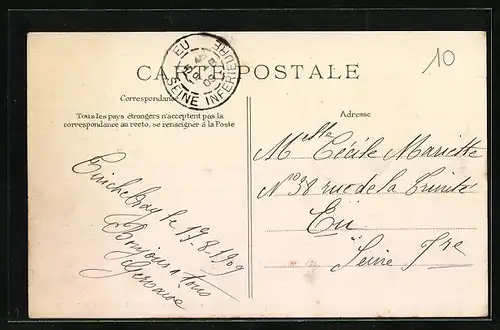 10
CARTE POSTALE
EU
SEINE INFÉRIEURE
Correspondance
Tous les pays étrangers n'acceptent pas la
correspondance au recto, se renseigner à la Poste
Adresse
Tinchebray le 19.8.1909
Bonjour à tous
Gervaise
Melle Cécile Mariette
N° 38 rue de la Trinité
Eu
Seine Infre